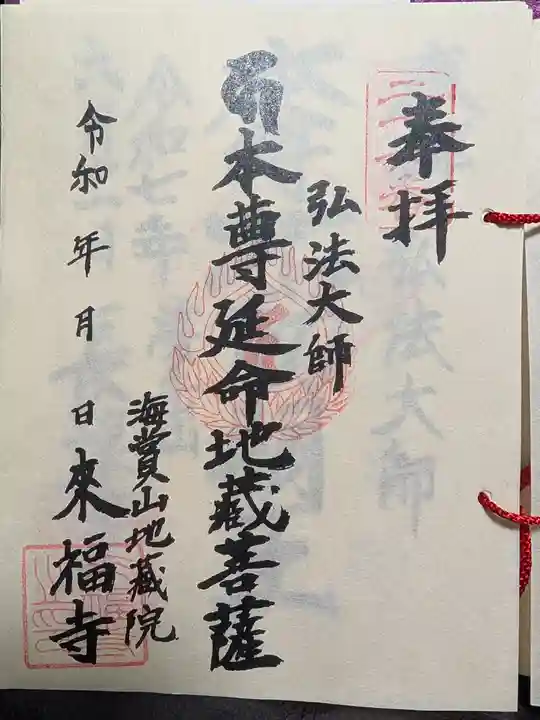 奉拝
弘法大師
本尊延命地蔵菩薩
海賞山地蔵院
來福寺
令和 年 月 日